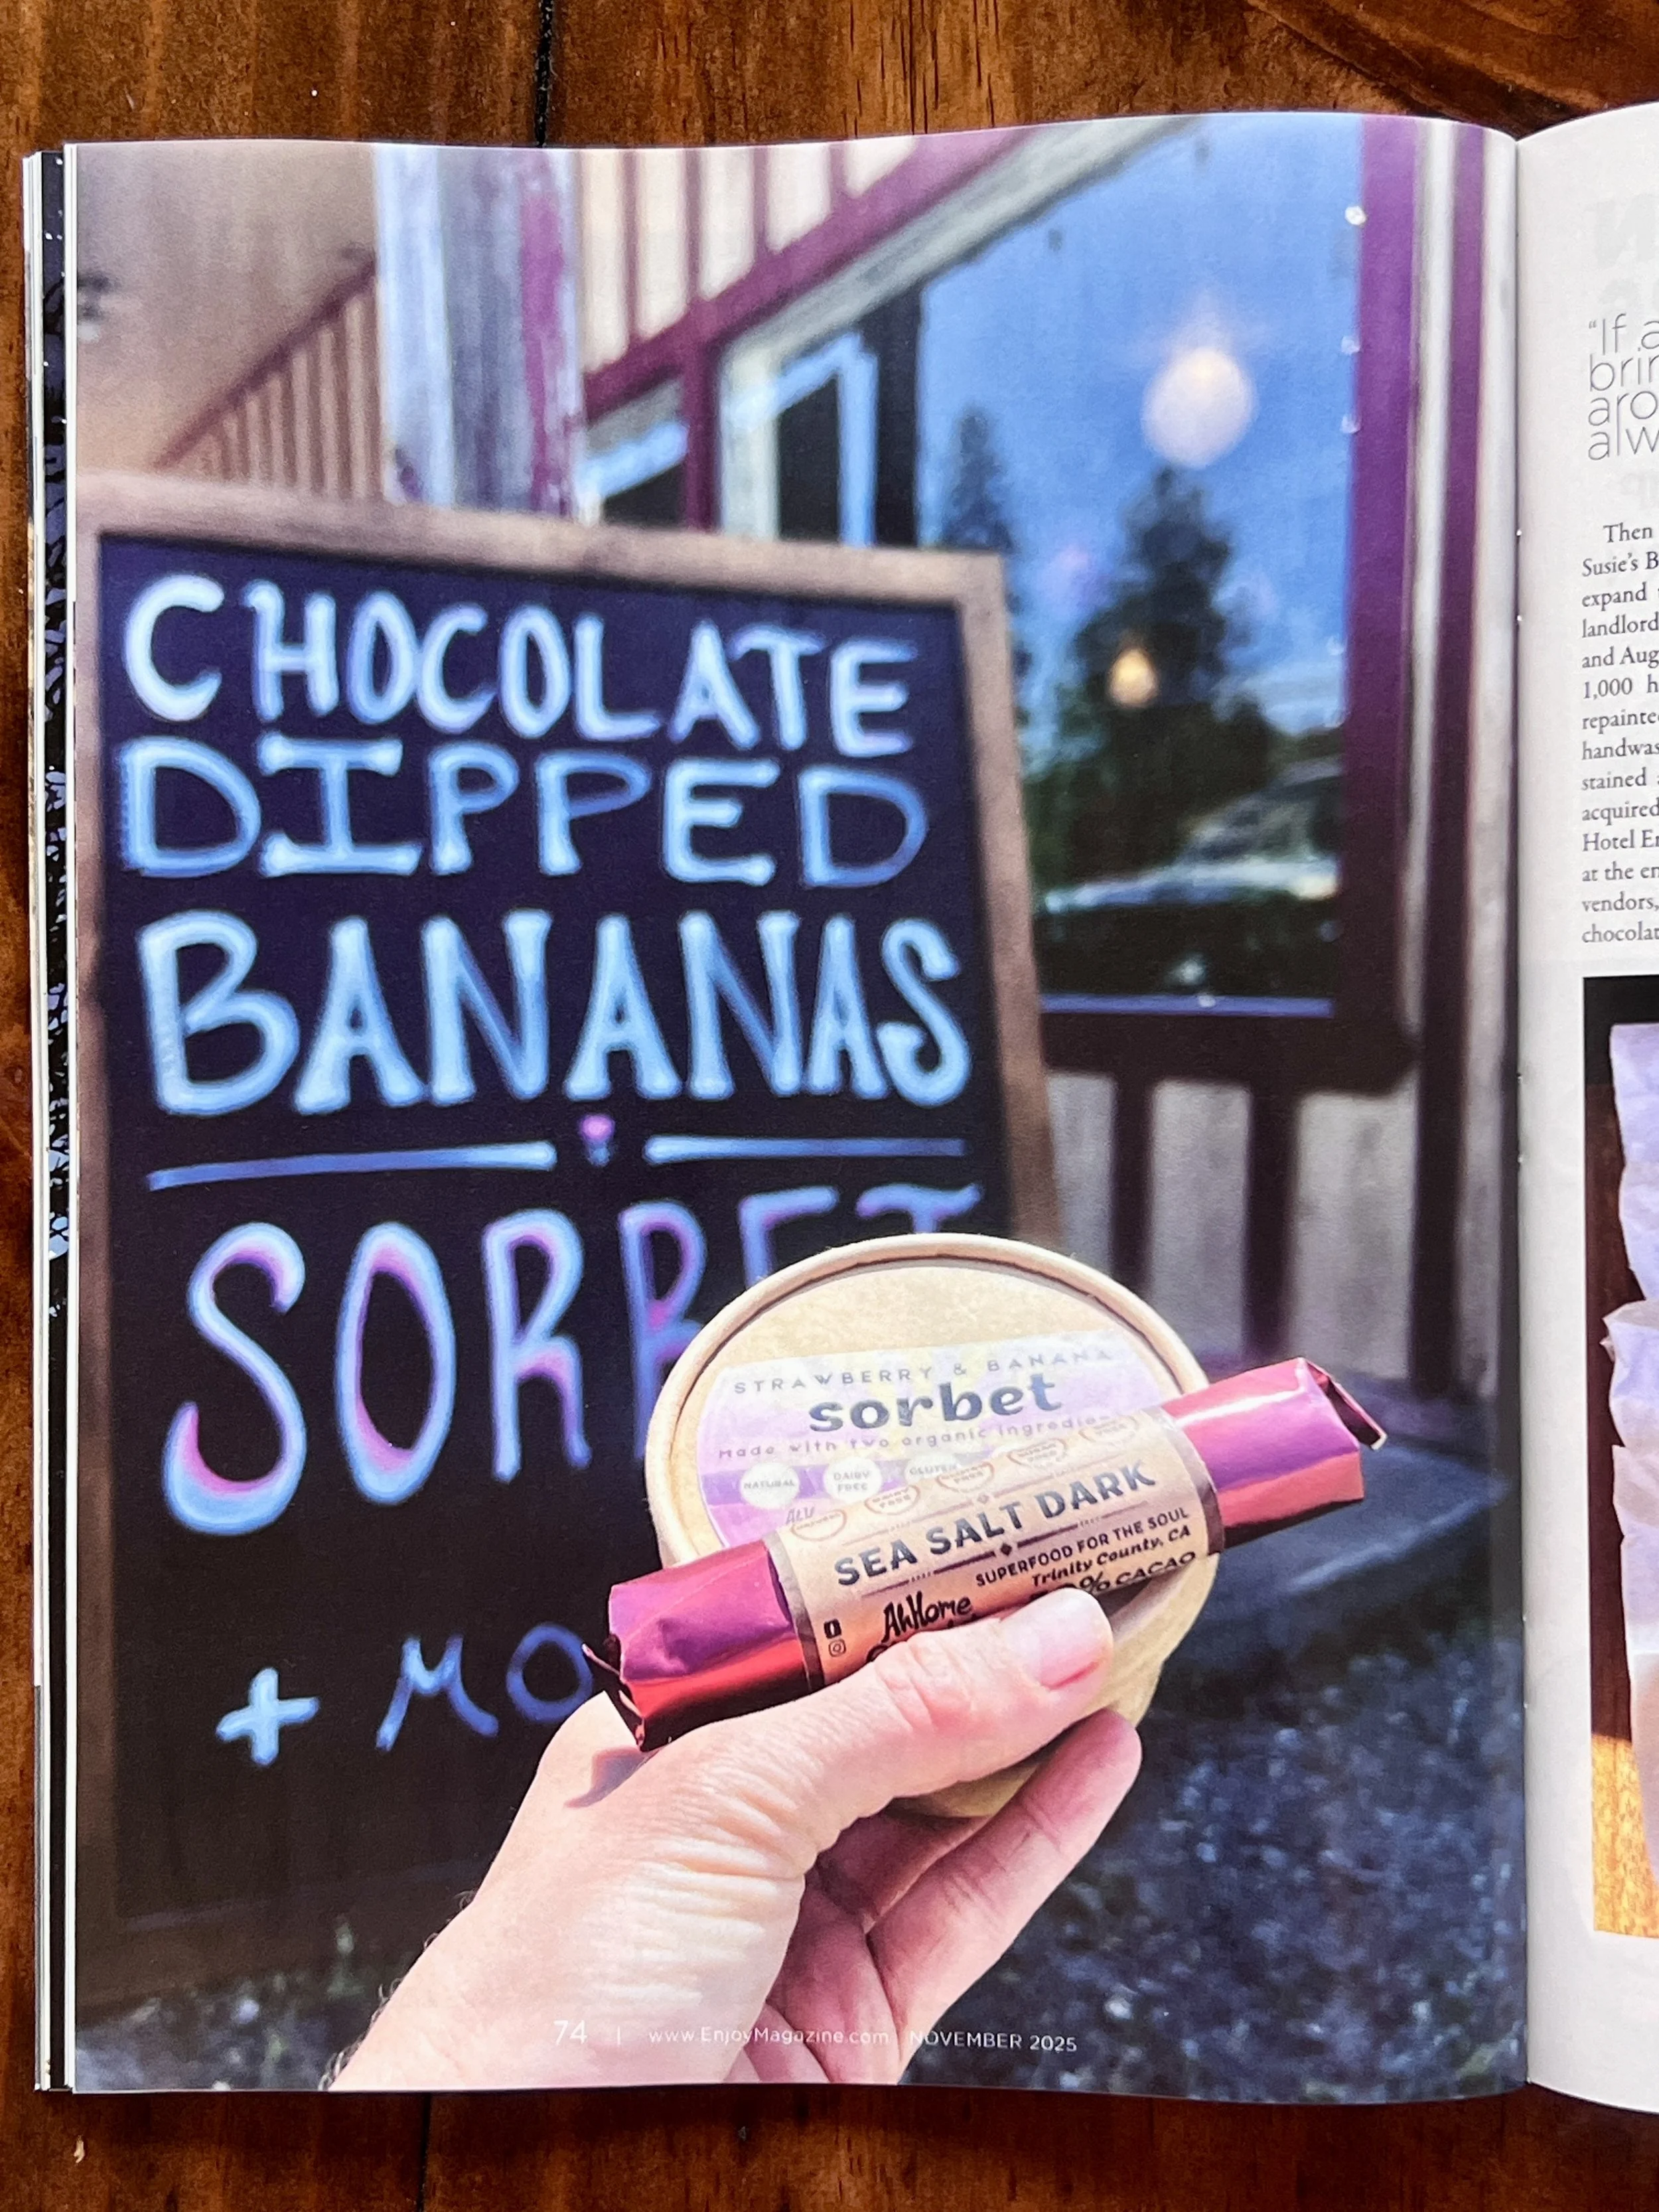 CHOCOLATE
DIPPED
BANANAS
SORBET
+ MO
STRAWBERRY & BANANA
sorbet
Made with two organic ingredie
NATURAL
DAIRY FREE
GLUTEN
SEA SALT DARK
SUPERFOOD FOR THE SOUL
Trinity County, CA
% CACAO
AhHome
74 | www.EnjoyMagazine.com | NOVEMBER 2025
“If a
brin
aro
alw
Then
Susie’s B
expand
landlord
and Aug
1,000 h
repainte
handwas
stained
acquired
Hotel Er
at the en
vendors,
chocolat